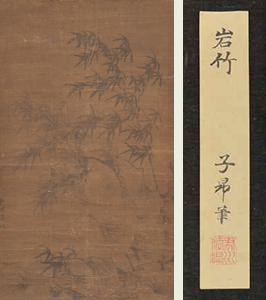 岩竹
子昂筆